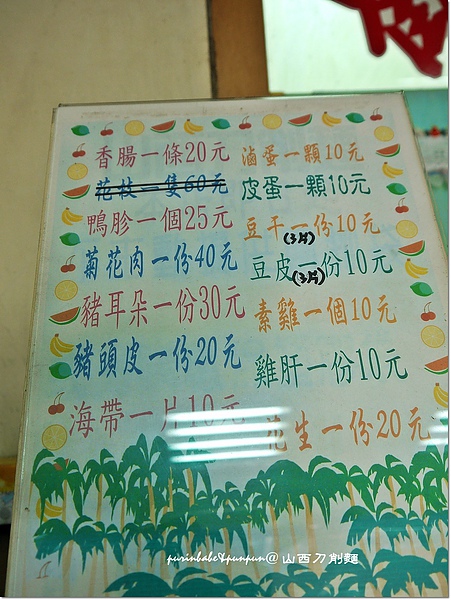 香腸一條20元
花枝一隻60元
鴨胗一個25元
菊花肉一份40元
豬耳朵一份30元
豬頭皮一份20元
海帶一片10元
滷蛋一顆10元
皮蛋一顆10元
豆干一份10元
(3片)
豆皮一份10元
(3片)
素雞一個10元
雞肝一份10元
花生一份20元
purinbabe&punpun@山西刀削麵